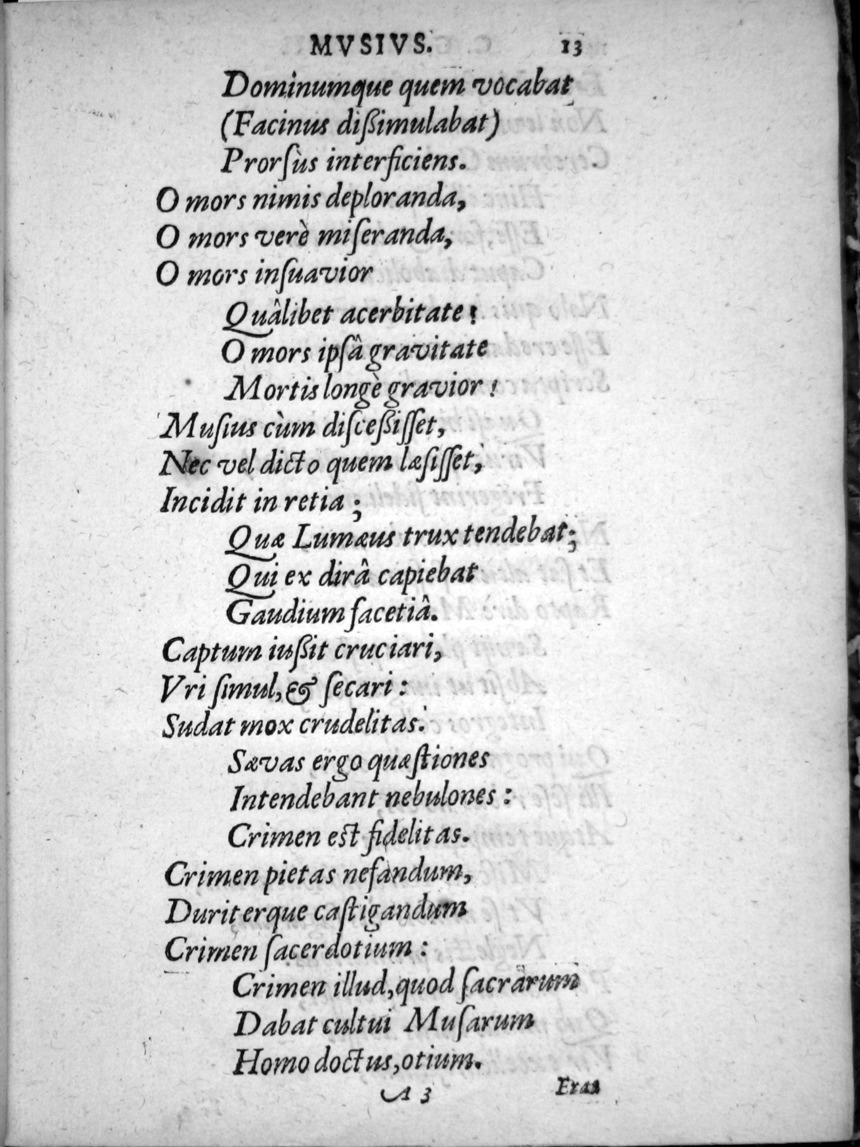 MVSIVS. 13
Dominumque quem vocabat
(Facinus dißimulabat)
Prorſùs interficiens.
O mors nimis deploranda,
O mors verè miſeranda,
O mors inſuavior
Quâlibet acerbitate!
O mors ipſâ gravitate
Mortis longè gravior!
Muſius cùm diſceßiſſet,
Nec vel dicto quem læſiſſet,
Incidit in retia;
Quæ Lumæus trux tendebat;
Qui ex dirâ capiebat
Gaudium facetiâ.
Captum iußit cruciari,
Vri ſimul, & ſecari:
Sudat mox crudelitas.
Sævas ergo quæſtiones
Intendebant nebulones:
Crimen eſt fidelitas.
Crimen pietas nefandum,
Duriterque caſtigandum
Crimen ſacerdotium:
Crimen illud, quod ſacrarum
Dabat cultui Muſarum
Homo doctus, otium.
A 3 Erat